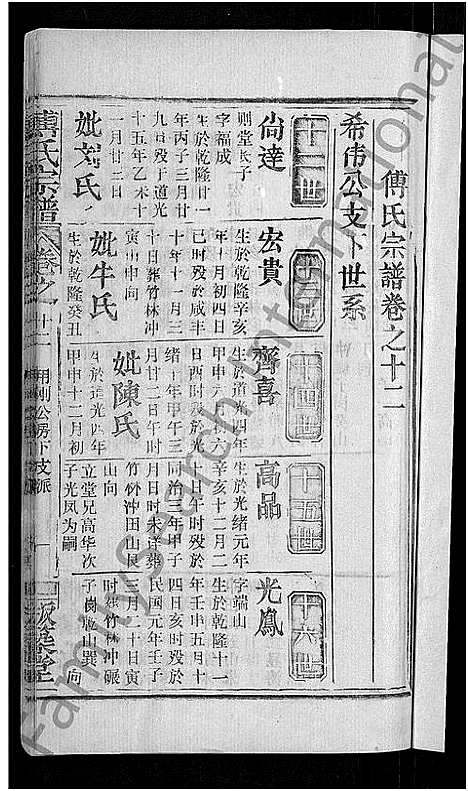 傅氏宗譜卷之十二
希偉公支下世系
十二世
尙達
則堂長子
字福成
生於乾隆廿一
年丙子三月廿
九日殁于道光
十五年乙未十
一月廿三日
妣刘氏
十三世
宏貴
生於乾隆辛亥
年十月初四日
巳時殁於咸丰
十年十一月三
十日葬竹林冲
寅山申向
妣牛氏
生於乾隆癸丑
十四世
齊喜
生於道光四年
甲申六月十六
日酉時殁於光
緒二十年甲午三
月廿二日午時
妣陳氏
生於道光四年
甲申十二月初
十五世
高品
生於光绪元年
辛亥十二月二
十日午時殁於
同治三年甲子
月日時未详葬
竹林冲田山艮
山向
立堂兄高华次
子光凤为嗣
十六世
光鳳
字端山
生於乾隆十一
年壬申五月十
四日亥時殁於
民国元年壬子
三月二十日寅
時葬竹林冲碾
子岗乾山巽向
傅氏宗譜
卷之十二
明則公房下支派
一
版築堂
Familysearch international